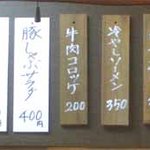 冷やしソーメン
350
牛肉コロッケ
200
豚しゃぶサラダ
400円